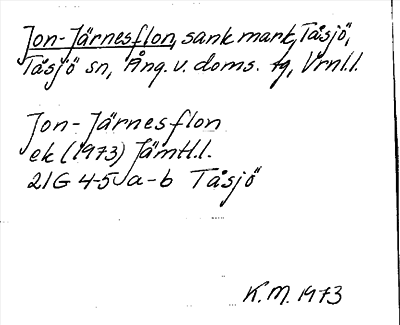 Jon-Järnesflon, sank mark, Tåsjö,
Tåsjö sn, Ång. v. doms. tg, Vrnl.l.
Jon-Järnesflon
ek (1973) Jämtl.l.
21G 4-5 a-b Tåsjö
K.M. 1973